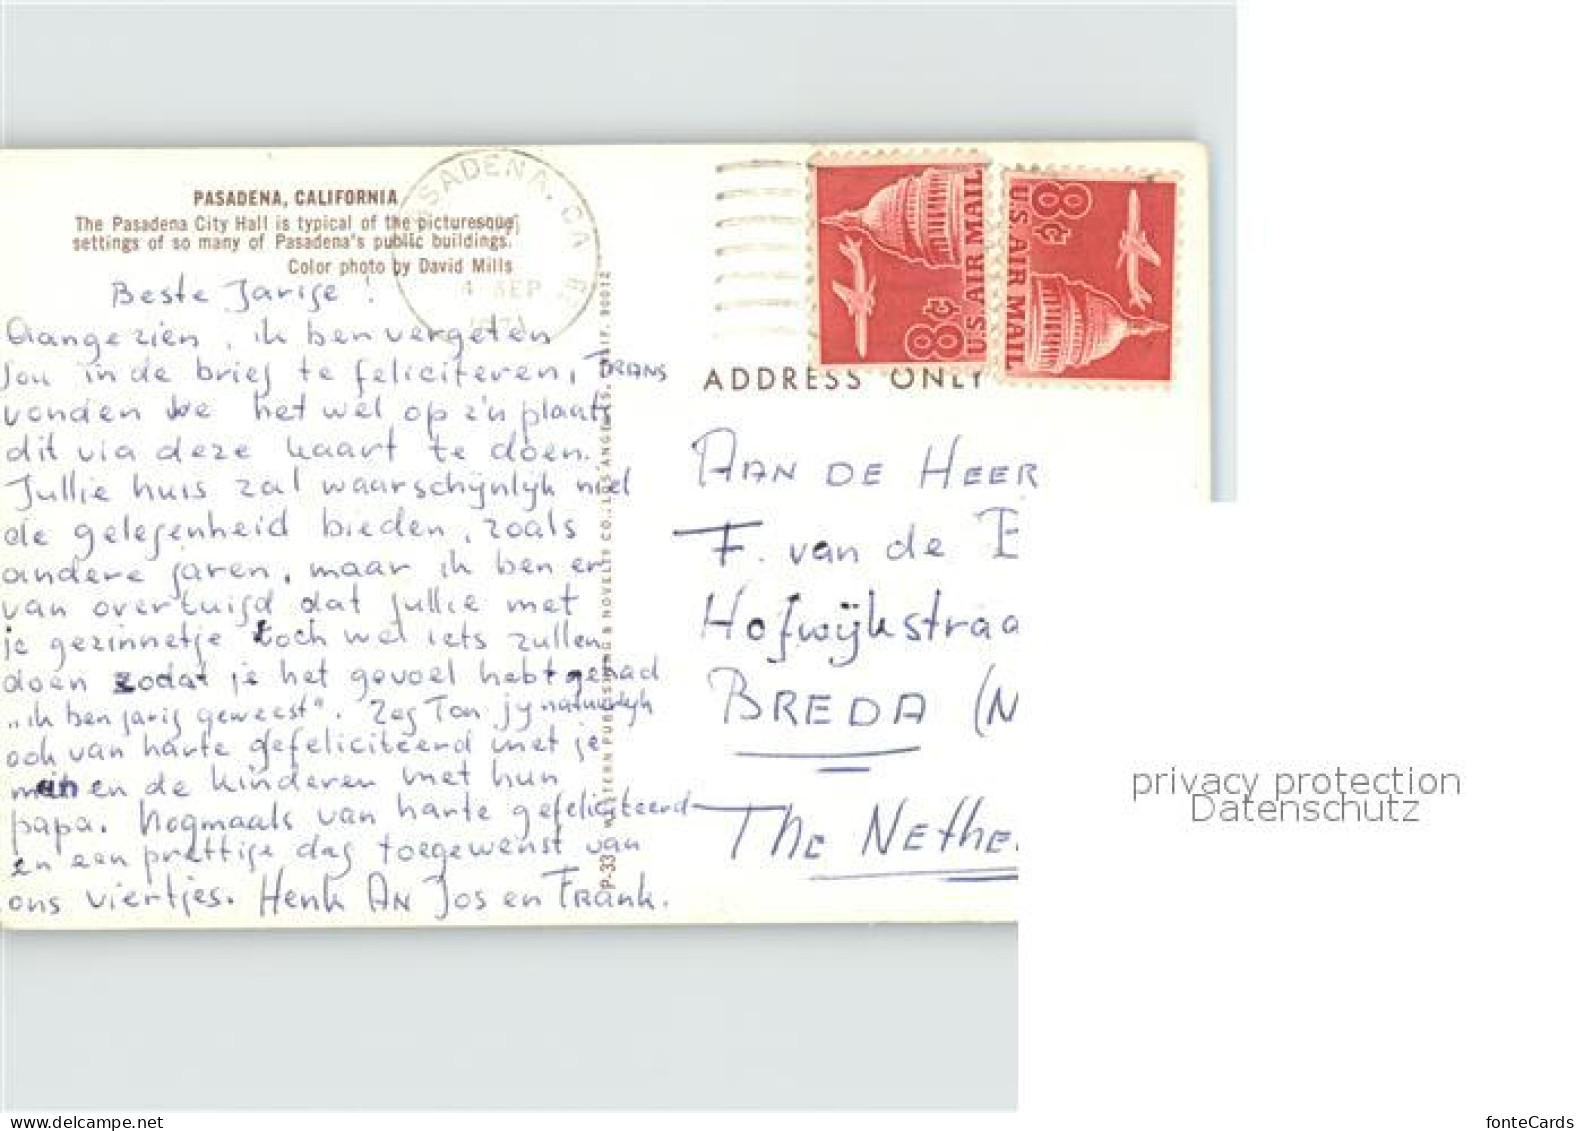 PASADENA, CALIFORNIA
The Pasadena City Hall is typical of the picturesque
settings of so many of Pasadena's public buildings.
Color photo by David Mills
SADENA, CA
4 SEP
1971
U.S. AIR MAIL
8¢
8¢
U.S. AIR MAIL
Beste Jarige!
Aangezien, ik ben vergeten
jou in de brief te feliciteren, FRANS
vonden we het wel op z'n plaats
dit via deze kaart te doen.
Jullie huis zal waarschijnlijk niet
de gelegenheid bieden, zoals
andere jaren, maar ik ben er
van overtuigd dat jullie met
je gezinnetje toch wel iets zullen
doen zodat je het gevoel hebt gehad
„ik ben jarig geweest". Zeg Ton jy natuurlijk
ook van harte gefeliciteerd met je
man en de kinderen met hun
papa. Nogmaals van harte gefeliciteerd
en een prettige dag toegewenst van
ons viertjes. Henk An Jos en Frank.
P-33 WESTERN PUBLISHING & NOVELTY CO., LOS ANGELES, CALIF. 90012
ADDRESS ONLY
AAN DE HEER
F. van de
Hofwijkstraa
BREDA (N
The Nethe
privacy protection
Datenschutz
fonteCards